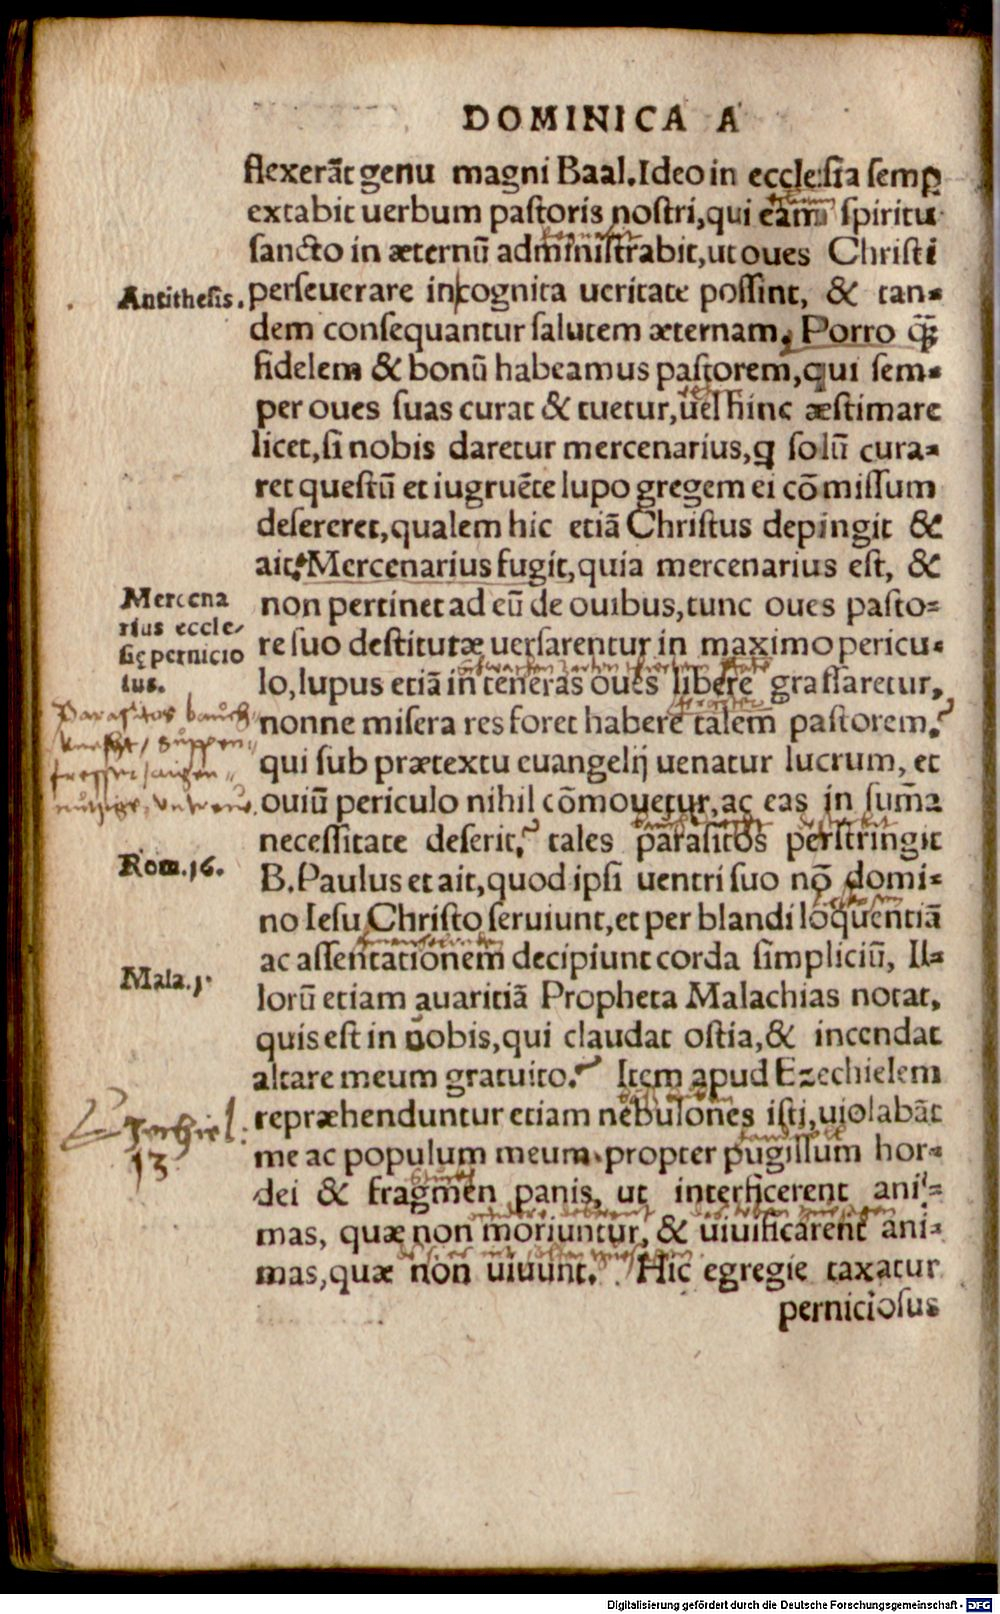 DOMINICA A
flexerāt genu magni Baal. Ideo in ecclesia semꝑ
extabit uerbum pastoris nostri, qui eam spiritu
sancto in æternū administrabit, ut oues Christi
Antithesis.
perseuerare in cognita ueritate possint, & tan-
dem consequantur salutem æternam. Porro
fidelem & bonū habeamus pastorem, qui sem-
per oues suas curat & tuetur, uel hinc æstimare
licet, si nobis daretur mercenarius, q solū cura-
ret questū et iugruēte lupo gregem ei cōmissum
desereret, qualem hic etiā Christus depingit &
ait: Mercenarius fugit, quia mercenarius est, &
Mercena
rius eccle-
się pernicio
sus.
non pertinet ad eū de ouibus, tunc oues pasto-
re suo destitutæ uersarentur in maximo pericu-
lo, lupus etiā in teneras oues libere grassaretur,
nonne misera res foret habere talem pastorem?
Parasitos bauch
knecht / suppen-
fresser / aigen-
nutzige,
qui sub prætextu euangelij uenatur lucrum, et
ouiū periculo nihil cōmouetur, ac eas in sum̄a
necessitate deserit? tales parasitos perstringit
Rom. 16.
B. Paulus et ait, quod ipsi uentri suo nō domi-
no Iesu Christo seruiunt, et per blandiloquentiā
ac assentationem decipiunt corda simpliciū, Il-
Mala. 1.
lorū etiam auaritiā Propheta Malachias notat,
quis est in uobis, qui claudat ostia, & incendat
altare meum gratuito? Item apud Ezechielem
Ezechiel:
13
repræhenduntur etiam nebulones isti, uiolabāt
me ac populum meum propter pugissum hor-
dei & fragmen panis, ut interficerent ani-
mas, quæ non moriuntur, & uiuificarent ani-
mas, quæ non uiuunt. Hic egregie taxatur
perniciosus
Digitalisierung gefördert durch die Deutsche Forschungsgemeinschaft - DFG